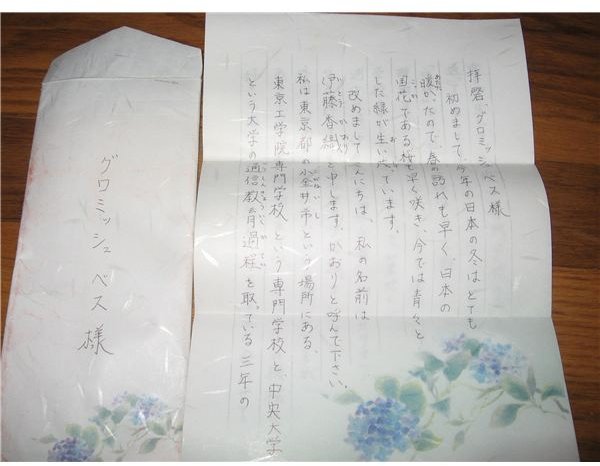 拝啓 グロミッシュ ベス様
初めまして。今年の日本の冬はとても
暖かったので、春の訪れも早く、日本の
国花である桜も早く咲き、今では青々と
した緑が生い ています。
改めましてこんにちは、私の名前は
伊藤香織と申します。かおりと呼んで下さい。
私は東京都の小金井市という場所にある、
東京工学院専門学校、という専門学校と、中央大学
という大学の通信教育過程を取っている三年の
グロミッシュ ベス 様